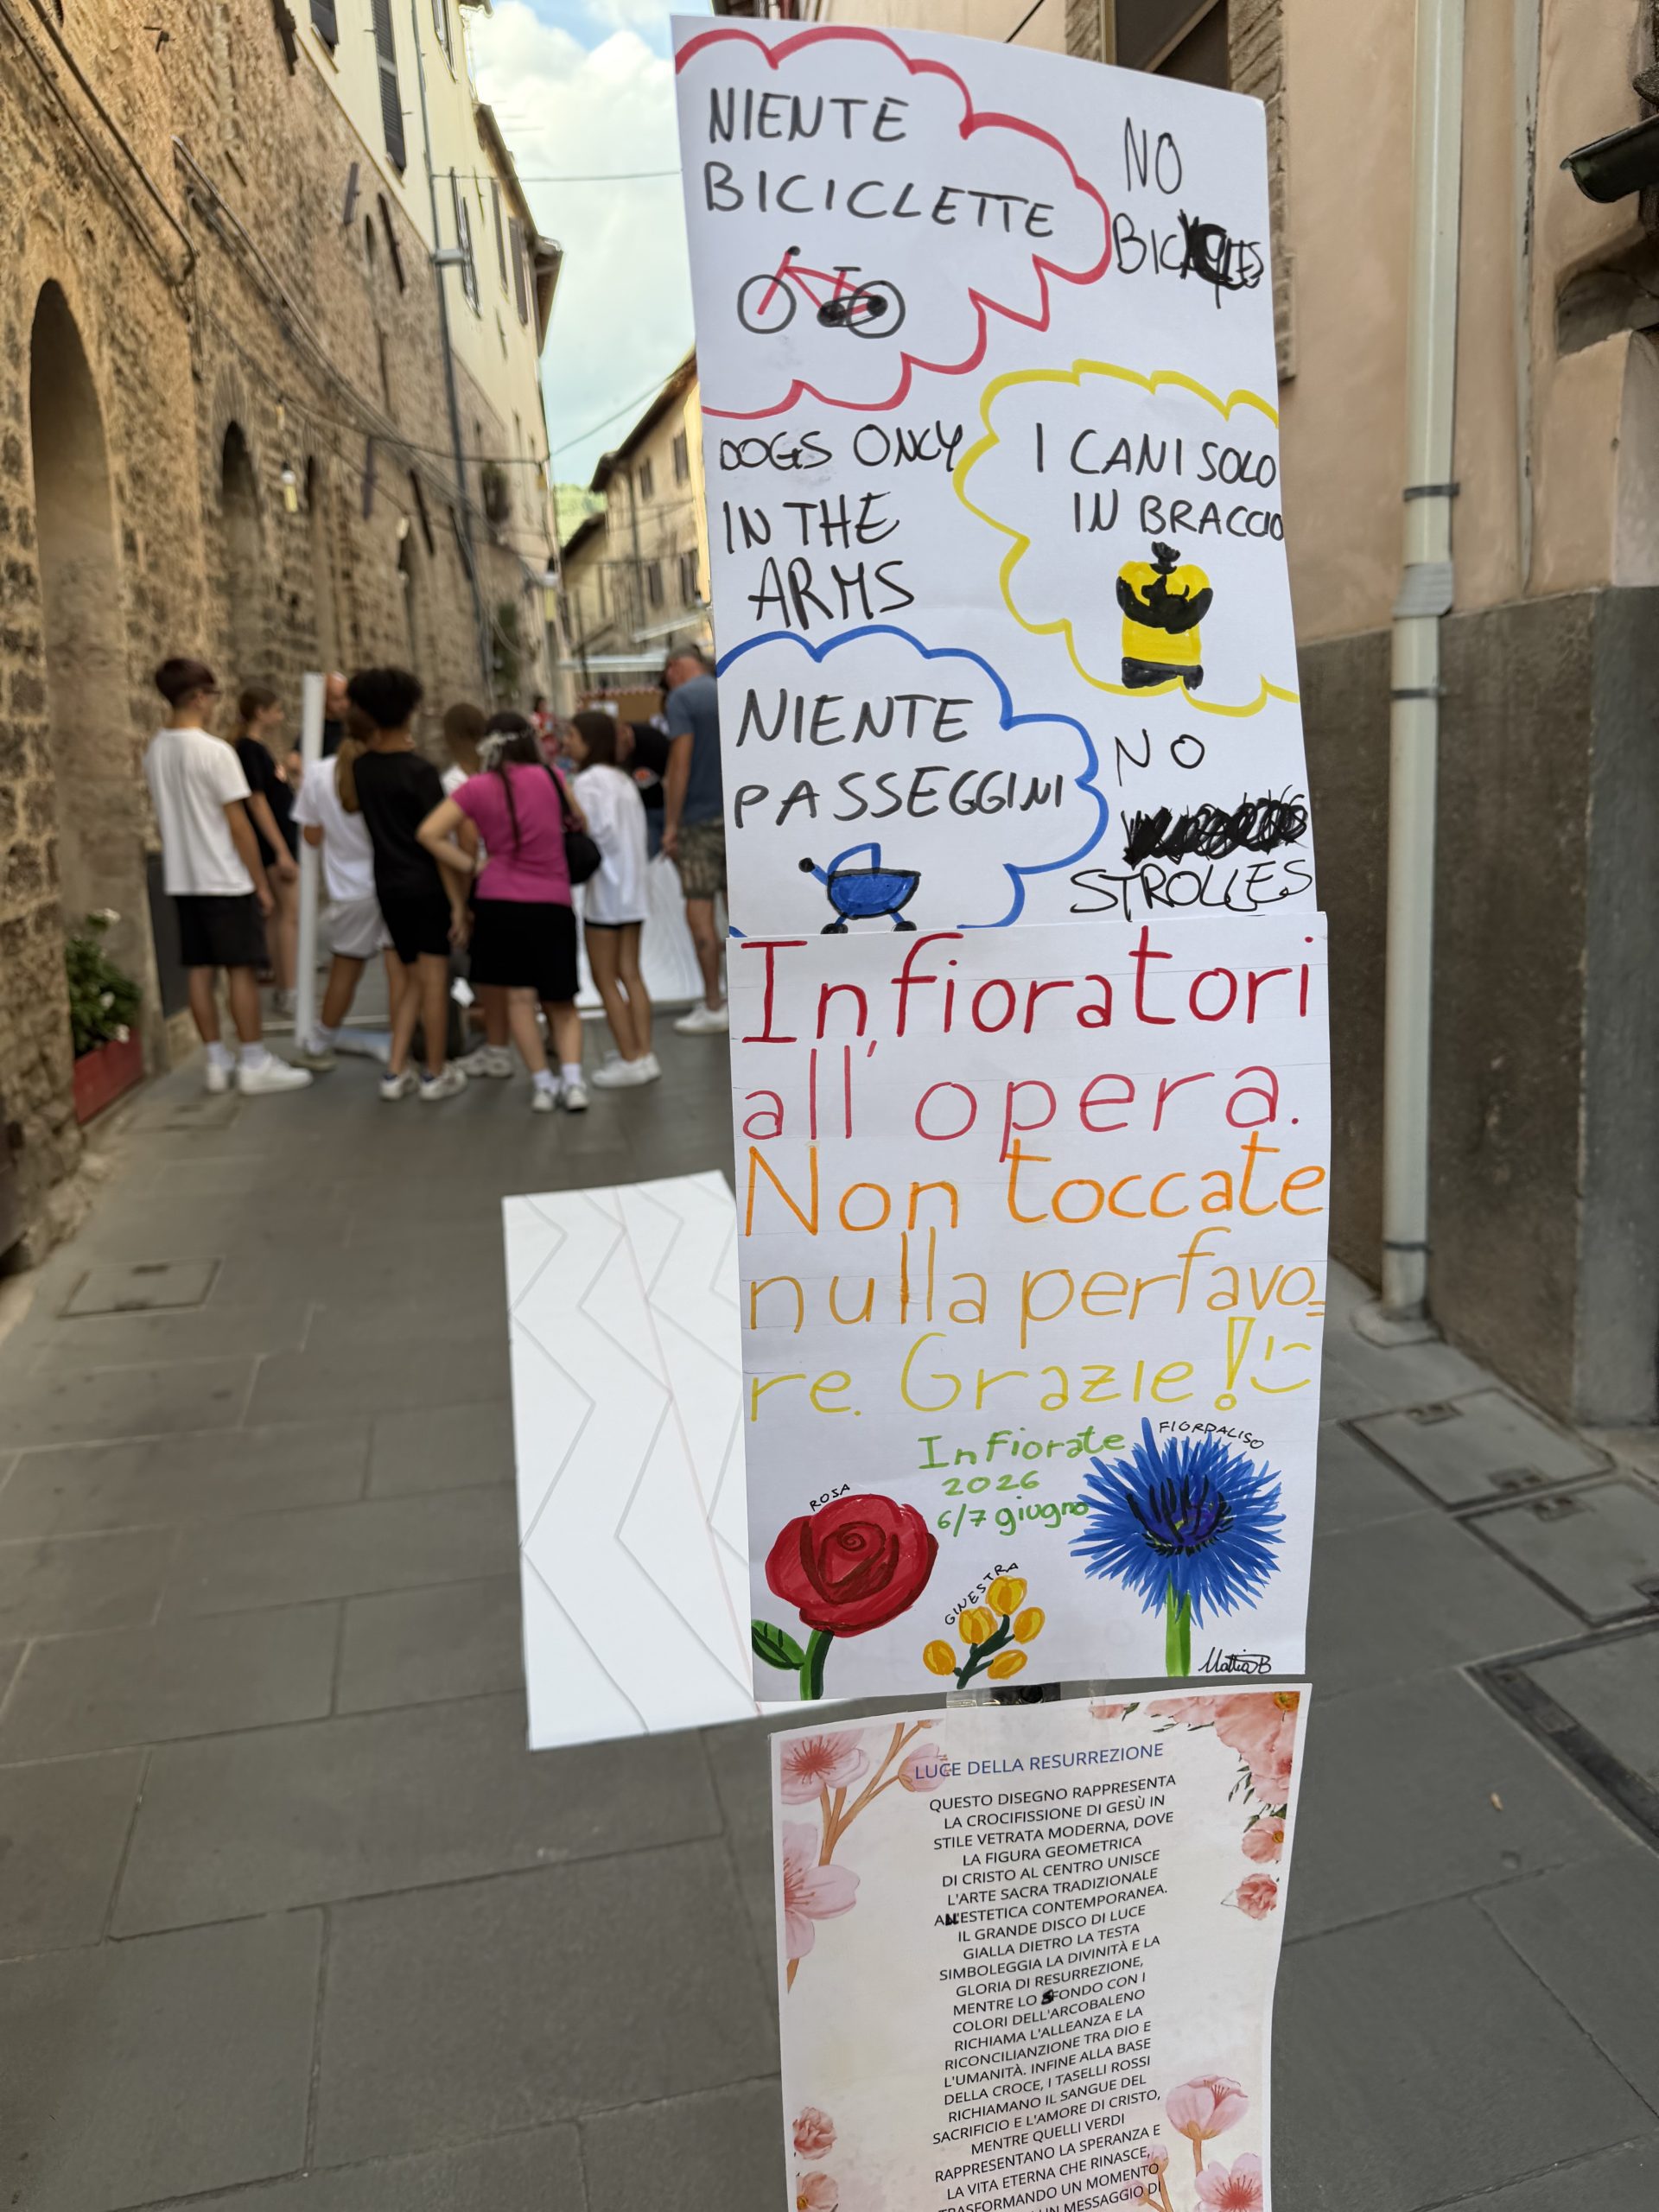 NIENTE
BICICLETTE
NO
DOGS ONLY
IN THE
ARMS
I CANI SOLO
IN BRACCIO
NIENTE
PASSEGGINI
NO
STROLLES
Infioratori
all'opera.
Non toccate
nulla perfavo=
re. Grazie!
Infiorate
2026
6/7 giugno
FIORDALISO
ROSA
GINESTRA
Mattia B
LUCE DELLA RESURREZIONE
QUESTO DISEGNO RAPPRESENTA
LA CROCIFISSIONE DI GESÙ IN
STILE VETRATA MODERNA, DOVE
LA FIGURA GEOMETRICA
DI CRISTO AL CENTRO UNISCE
L'ARTE SACRA TRADIZIONALE
ALL'ESTETICA CONTEMPORANEA.
IL GRANDE DISCO DI LUCE
GIALLA DIETRO LA TESTA
SIMBOLEGGIA LA DIVINITÀ E LA
GLORIA DI RESURREZIONE,
MENTRE LO SFONDO CON I
COLORI DELL'ARCOBALENO
RICHIAMA L'ALLEANZA E LA
RICONCILIANZIONE TRA DIO E
L'UMANITÀ. INFINE ALLA BASE
DELLA CROCE, I TASELLI ROSSI
RICHIAMANO IL SANGUE DEL
SACRIFICIO E L'AMORE DI CRISTO,
MENTRE QUELLI VERDI
RAPPRESENTANO LA SPERANZA E
LA VITA ETERNA CHE RINASCE,
TRASFORMANDO UN MOMENTO
UN MESSAGGIO DI